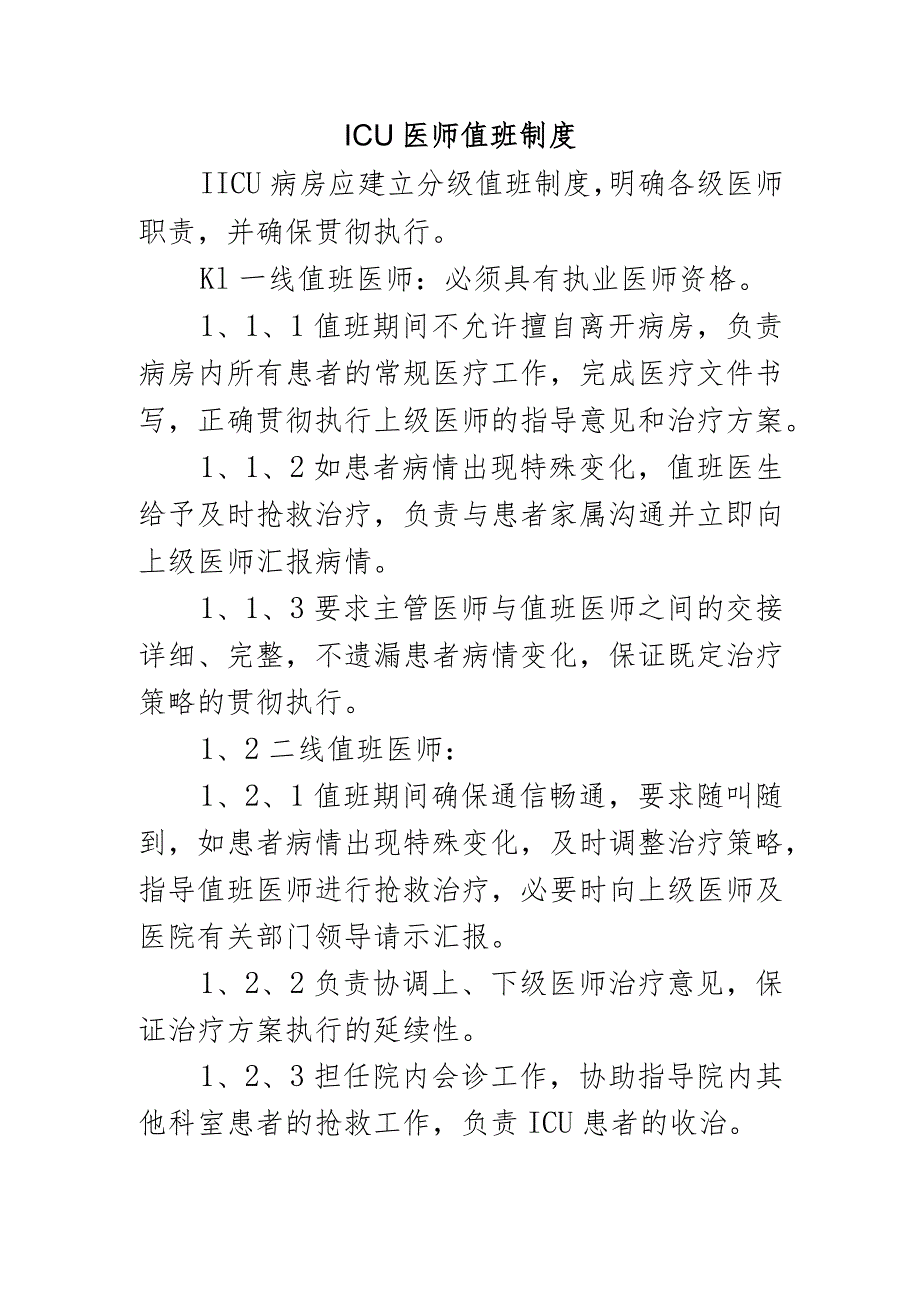 ICU医师值班制度
IICU病房应建立分级值班制度,明确各级医师
职责，并确保贯彻执行。
Kl一线值班医师：必须具有执业医师资格。
1、1、1值班期间不允许擅自离开病房，负责
病房内所有患者的常规医疗工作，完成医疗文件书
写，正确贯彻执行上级医师的指导意见和治疗方案。
1、1、2如患者病情出现特殊变化，值班医生
给予及时抢救治疗，负责与患者家属沟通并立即向
上级医师汇报病情。
1、1、3要求主管医师与值班医师之间的交接
详细、完整，不遗漏患者病情变化，保证既定治疗
策略的贯彻执行。
1、2二线值班医师：
1、2、1值班期间确保通信畅通，要求随叫随
到，如患者病情出现特殊变化，及时调整治疗策略，
指导值班医师进行抢救治疗，必要时向上级医师及
医院有关部门领导请示汇报。
1、2、2负责协调上、下级医师治疗意见，保
证治疗方案执行的延续性。
1、2、3担任院内会诊工作，协助指导院内其
他科室患者的抢救工作，负责ICU患者的收治。